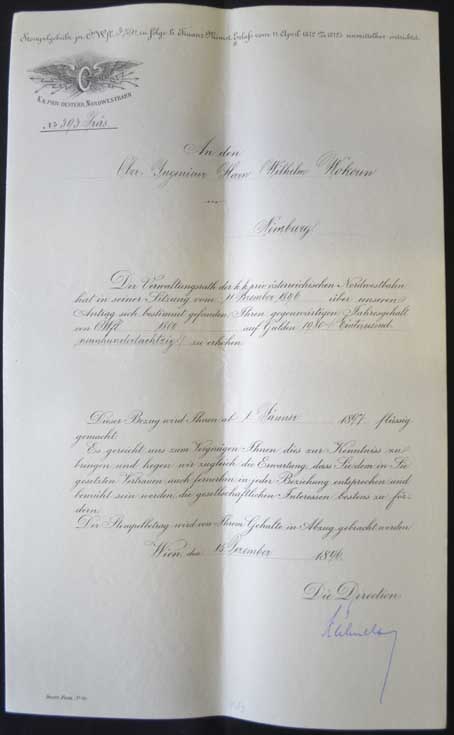 Stempelgebühr pr. in folge k. Finanz Minist. Erlass vom 11 April unmittelbar entrichtet
K.K. PRIV. OESTERR. NORDWESTBAHN
No 393 Präs
An den
Ober Ingenieur Herrn Wilhelm Wokoun
Nimburg
Der Verwaltungsrath der k.k. priv. österreichischen Nordwestbahn
hat in seiner Sitzung vom 11 Dezember 1896 über unseren
Antrag sich bestimmt gefunden, Ihren gegenwärtigen Jahresgehalt
von ÖWfl. 1800 auf Gulden
neunhundertachtzig) zu erhöhen.
Dieser Bezug wird Ihnen ab 1 Jänner 1897 flüssig
gemacht.
Es gereicht uns zum Vergnügen Ihnen dies zur Kenntniss zu
bringen und hegen wir zugleich die Erwartung, dass Sie dem in Sie
gesetzten Vertrauen auch fernerhin in jeder Beziehung entsprechen und
bemüht sein werden, die gesellschaftlichen Interessen bestens zu för-
dern.
Der Stempelbetrag wird von Ihrem Gehalte in Abzug gebracht werden.
Wien, den 15 Dezember 1896.
Die Direction